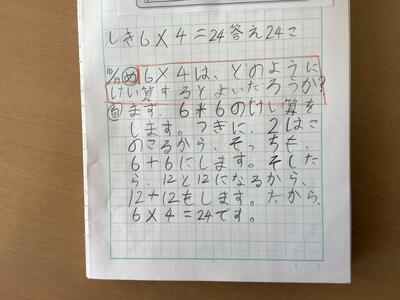 しき6×4=24答え24こ
10/19 め 6×4は、どのように
けい算するとよいだろうか?
自 まず、6+6のけい算を
します。つぎに、2はこ
のこるから、そっちも、
6+6にします。そした
ら、12と12になるから、
12+12をします。だから、
6×4=24です。